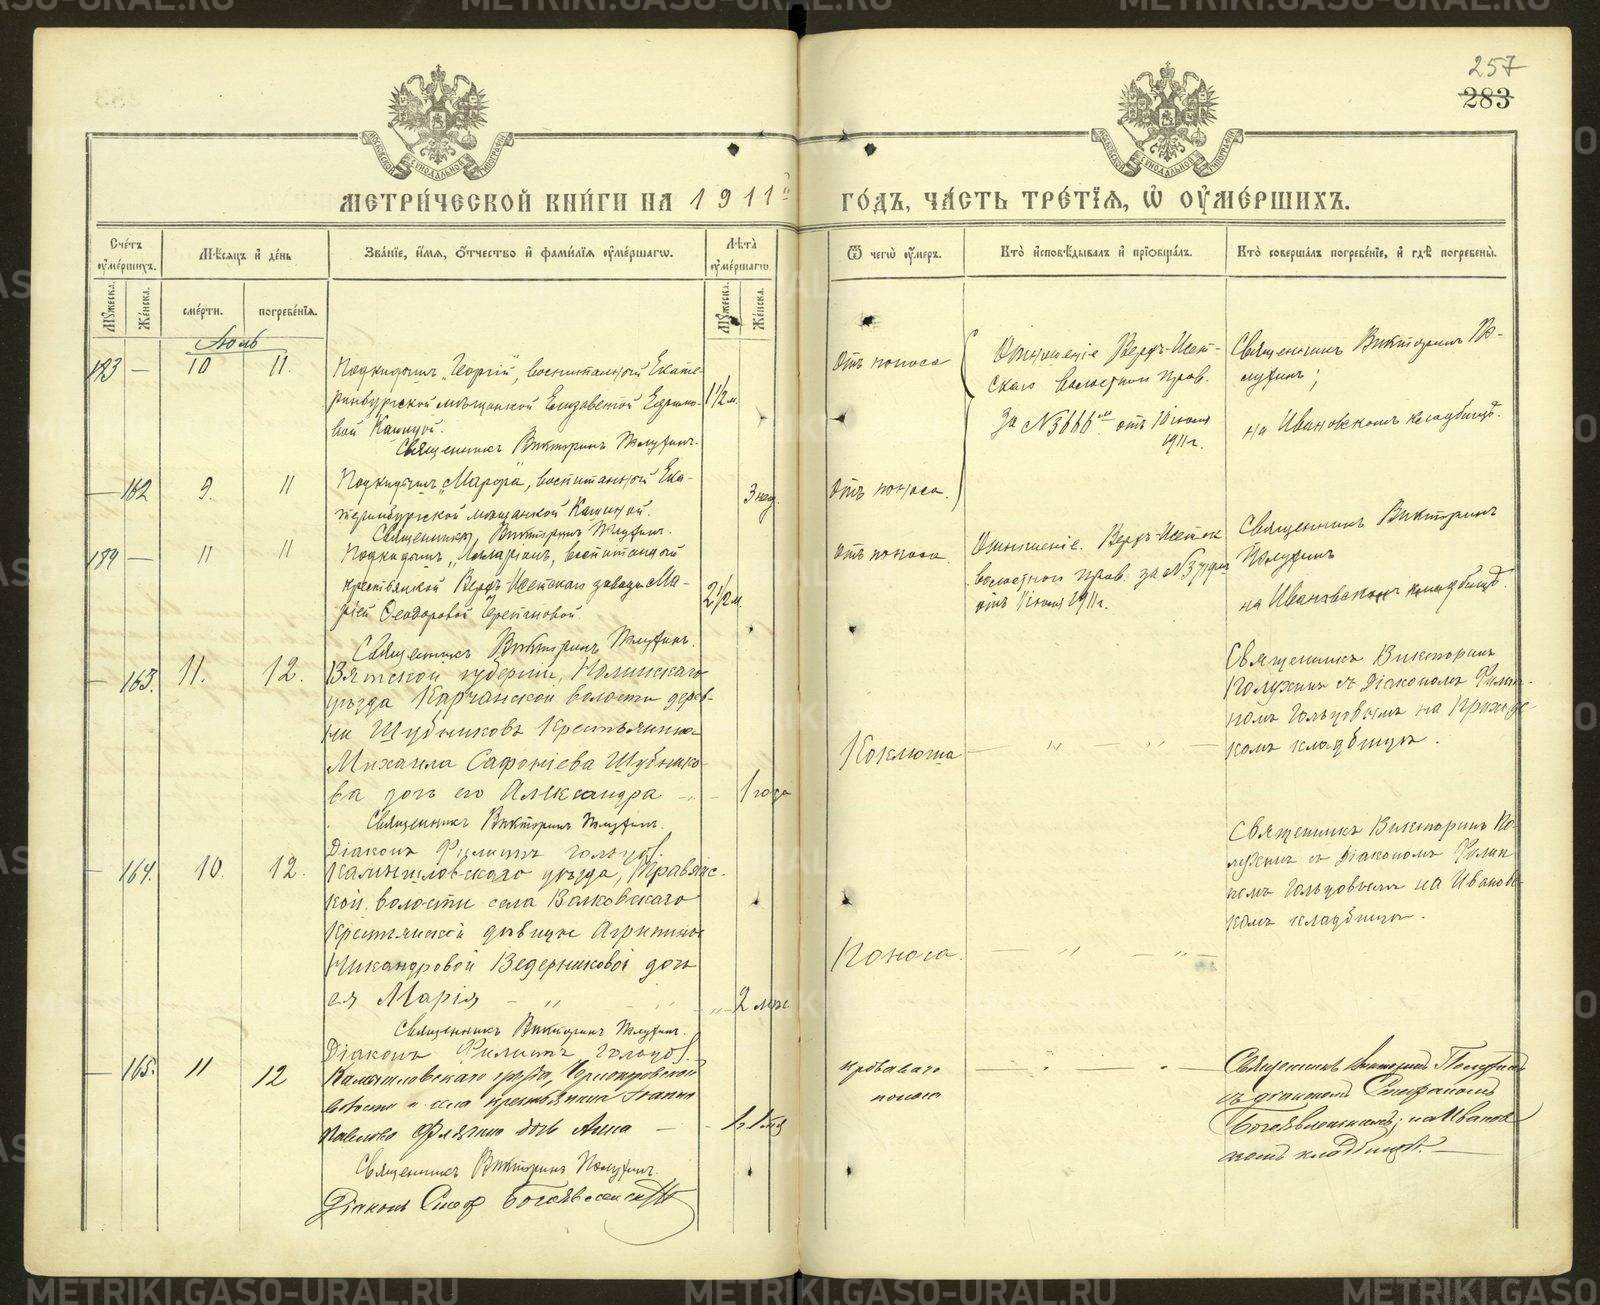 257
283
МЕТРИ́ЧЕСКОЙ КНИ́ГИ НА 1911й
ГО́ДЪ, ЧА́СТЬ ТРЕ́ТІѦ, Ѡ҆ ОУ҆МЕ́РШИХЪ.
Сче́тъ оу҆ме́ршихъ.
Мѣ́сяцъ и҆ де́нь
Зва́ніе, и҆́мѧ, о҆́тчество и҆ фами́ліѧ оу҆ме́ршагѡ.
Лѣ́та оу҆ме́ршагѡ
Ѿ чегѡ̀ оу҆́меръ.
Кто̀ и҆сповѣ́дывалъ и҆ прїѡбща́лъ.
Кто̀ соверша́лъ погребе́ніе, и҆ гдѣ̀ погребены̀.
Мꙋ́жеска.
Же́нска.
сме́рти.
погребе́нїѧ.
Мꙋ́жеска.
Же́нска.
Іюль
183 — 10 11.
Подкидышъ „Георгій“, воспитанный Екате-
ринбургской мѣщанкой Елизаветой
вой Кашиной.
Священникъ Викторинъ Полужинъ.
1 1/2 м.
Отъ поноса
Отношеніе Верхъ-Исет-
скаго волостного прав.
За № 3666 отъ 10 іюля
1911 г.
Священникъ Викторинъ По-
лужинъ;
на Ивановскомъ кладбищѣ.
— 162 9. 11
Подкидышъ „Марфа“, воспитанной Ека-
теринбургской мѣщанкой Кашиной.
Священникъ Викторинъ Полужинъ.
3 нед.
Отъ поноса.
184 — 11 11
Подкидышъ „Иларіонъ“, воспитанный
крестьянкой Верхъ-Исетскаго завода Ма-
ріей Ѳеодоровой
Священникъ Викторинъ Полужинъ.
2 1/2 м.
Отъ поноса
Отношеніе Верхъ-Исетск
волостного прав. за №
отъ 11 іюля 1911 г.
Священникъ Викторинъ
Полужинъ
на Ивановскомъ кладбищѣ.
— 163. 11. 12.
Вятской губерніи, Нолинскаго
уѣзда Карчанской волости дерев-
ни Шубниковъ Крестьянина
Михаила Сафоніева Шубнико-
ва дочь его Александра
Священникъ Викторинъ Полужинъ.
Діаконъ Филиппъ Гольцов.
1 года
Коклюша — „ — „ —
Священникъ Викторинъ
Полужинъ съ Діакономъ Филип-
помъ Гольцовымъ на Приход-
комъ кладбищѣ.
— 164. 10. 12.
Камышловскаго уѣзда, Травянс-
кой волости села Волковскаго
Крестьянской дѣвицы Агрипины
Никандровой Ведерниковой дочь
ея Марія — „
Священникъ Викторинъ Полужинъ.
Діаконъ Филиппъ Гольцов.
2 мѣс.
Поноса. — „ — „ —
Священникъ Викторинъ По-
лужинъ съ Діакономъ Филип-
помъ Гольцовымъ на Ивановс-
комъ кладбищѣ.
— 165. 11 12
Камышловскаго уѣзда,
волости и села крестьянина Іоанна
Павлова дочь Анна —
Священникъ Викторинъ Полужинъ.
Діаконъ Стеф Богоявленскій
кроваваго
поноса
Священникъ Викторинъ Полужинъ
съ діакономъ Стефаномъ
Богоявленскимъ; на Иванов
скомъ кладбищѣ. —
METRIKI.GASO-URAL.RU